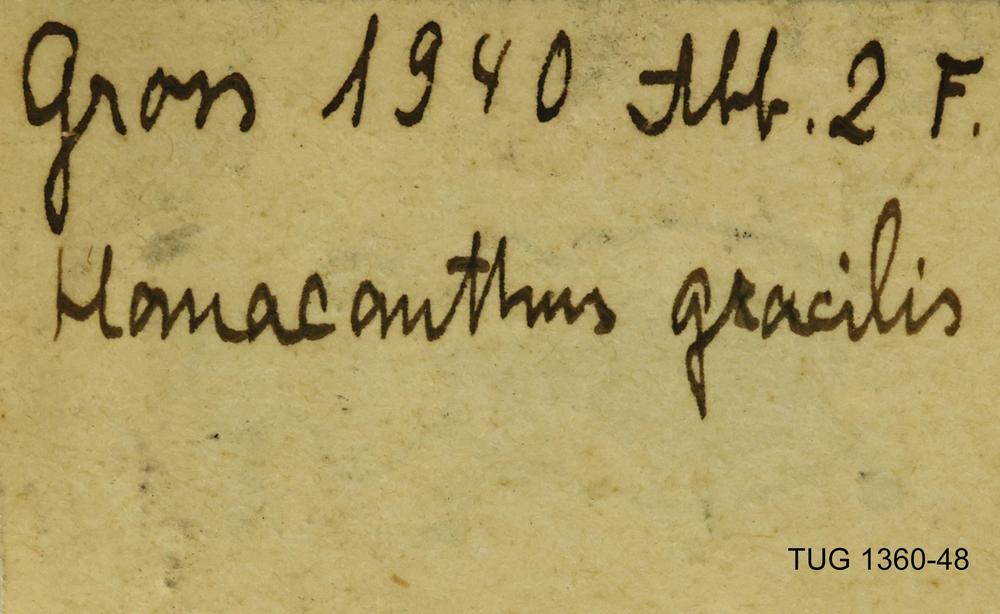 Gross 1940 Abb. 2 F.
Homacanthus gracilis
TUG 1360-48